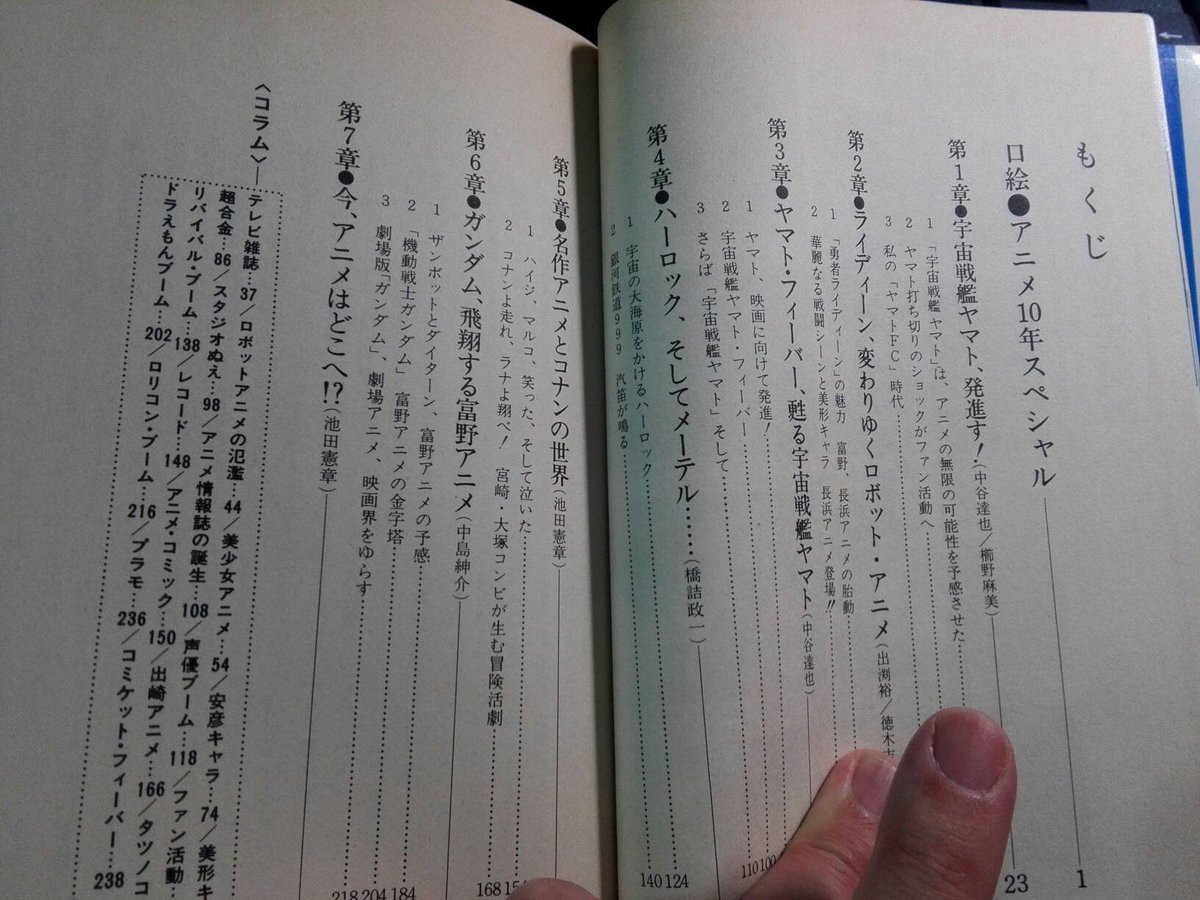 もくじ
口絵●アニメ10年スペシャル 1
第1章●宇宙戦艦ヤマト、発進す!(中谷達也/櫛野麻美) 23
1 「宇宙戦艦ヤマト」は、アニメの無限の可能性を予感させた
2 ヤマト打ち切りのショックがファン活動へ
3 私の「ヤマトFC」時代
第2章●ライディーン、変わりゆくロボット・アニメ(出渕裕/徳木
1 「勇者ライディーン」の魅力 富野、長浜アニメの胎動
2 華麗なる戦闘シーンと美形キャラ 長浜アニメ登場!!
第3章●ヤマト・フィーバー、甦る宇宙戦艦ヤマト(中谷達也)
1 ヤマト、映画に向けて発進!
2 宇宙戦艦ヤマト・フィーバー 100
3 さらば「宇宙戦艦ヤマト」そして 110
第4章●ハーロック、そしてメーテル……(橋詰政一)
1 宇宙の大海原をかけるハーロック 124
2 銀河鉄道999 汽笛が鳴る 140
第5章●名作アニメとコナンの世界(池田憲章)
1 ハイジ、マルコ、笑った、そして泣いた
2 コナンよ走れ、ラナよ翔べ! 宮崎・大塚コンビが生む冒険活劇 168
第6章●ガンダム、飛翔する富野アニメ(中島紳介)
1 ザンボットとダイターン、富野アニメの予感 184
2 「機動戦士ガンダム」富野アニメの金字塔 204
3 劇場版「ガンダム」、劇場アニメ、映画界をゆらす 218
第7章●今、アニメはどこへ!?(池田憲章)
〈コラム〉―テレビ雑誌…37/ロボットアニメの氾濫…44/美少女アニメ…54/安彦キャラ…74/美形キ
超合金…86/スタジオぬえ…98/アニメ情報誌の誕生…108/声優ブーム…118/ファン活動…
リバイバル・ブーム…138/レコード…148/アニメ・コミック…150/出崎アニメ…166/タツノコ
ドラえもんブーム…202/ロリコン・ブーム…216/プラモ…236/コミケット・フィーバー…238